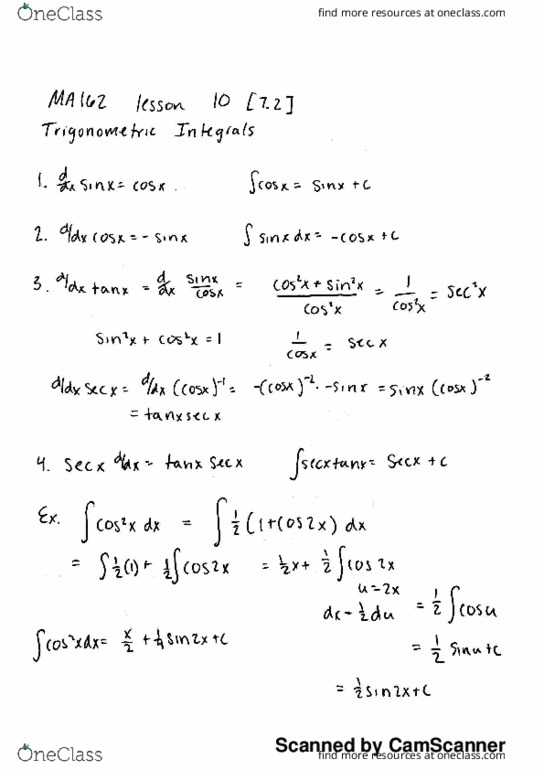 OneClass
find more resources at oneclass.com
MA162 lesson 10 [7.2]
Trigonometric Integrals
1. d/dx sinx = cosx. ∫cosx = sinx + c
2. d/dx cosx = - sinx ∫ sinx dx = -cosx + c
3. d/dx tanx = d/dx sinx/cosx = (cos²x + sin²x)/cos²x = 1/cos²x = sec²x
sin²x + cos²x = 1 1/cosx = secx
d/dx secx = d/dx (cosx)⁻¹ = -(cosx)⁻² · -sinx = sinx (cosx)⁻²
= tanxsecx
4. secx d/dx = tanx secx ∫secxtanx = secx + c
Ex. ∫cos²x dx = ∫ 1/2 (1+cos2x) dx
= ∫ 1/2 (1) + 1/2 ∫cos2x = 1/2 x + 1/2 ∫cos 2x
u = 2x
dx = 1/2 du = 1/2 ∫cosu
= 1/2 sinu + c
∫cos²xdx = x/2 + 1/4 sin2x + c
= 1/2 sin2x + c
Scanned by CamScanner
OneClass
find more resources at oneclass.com